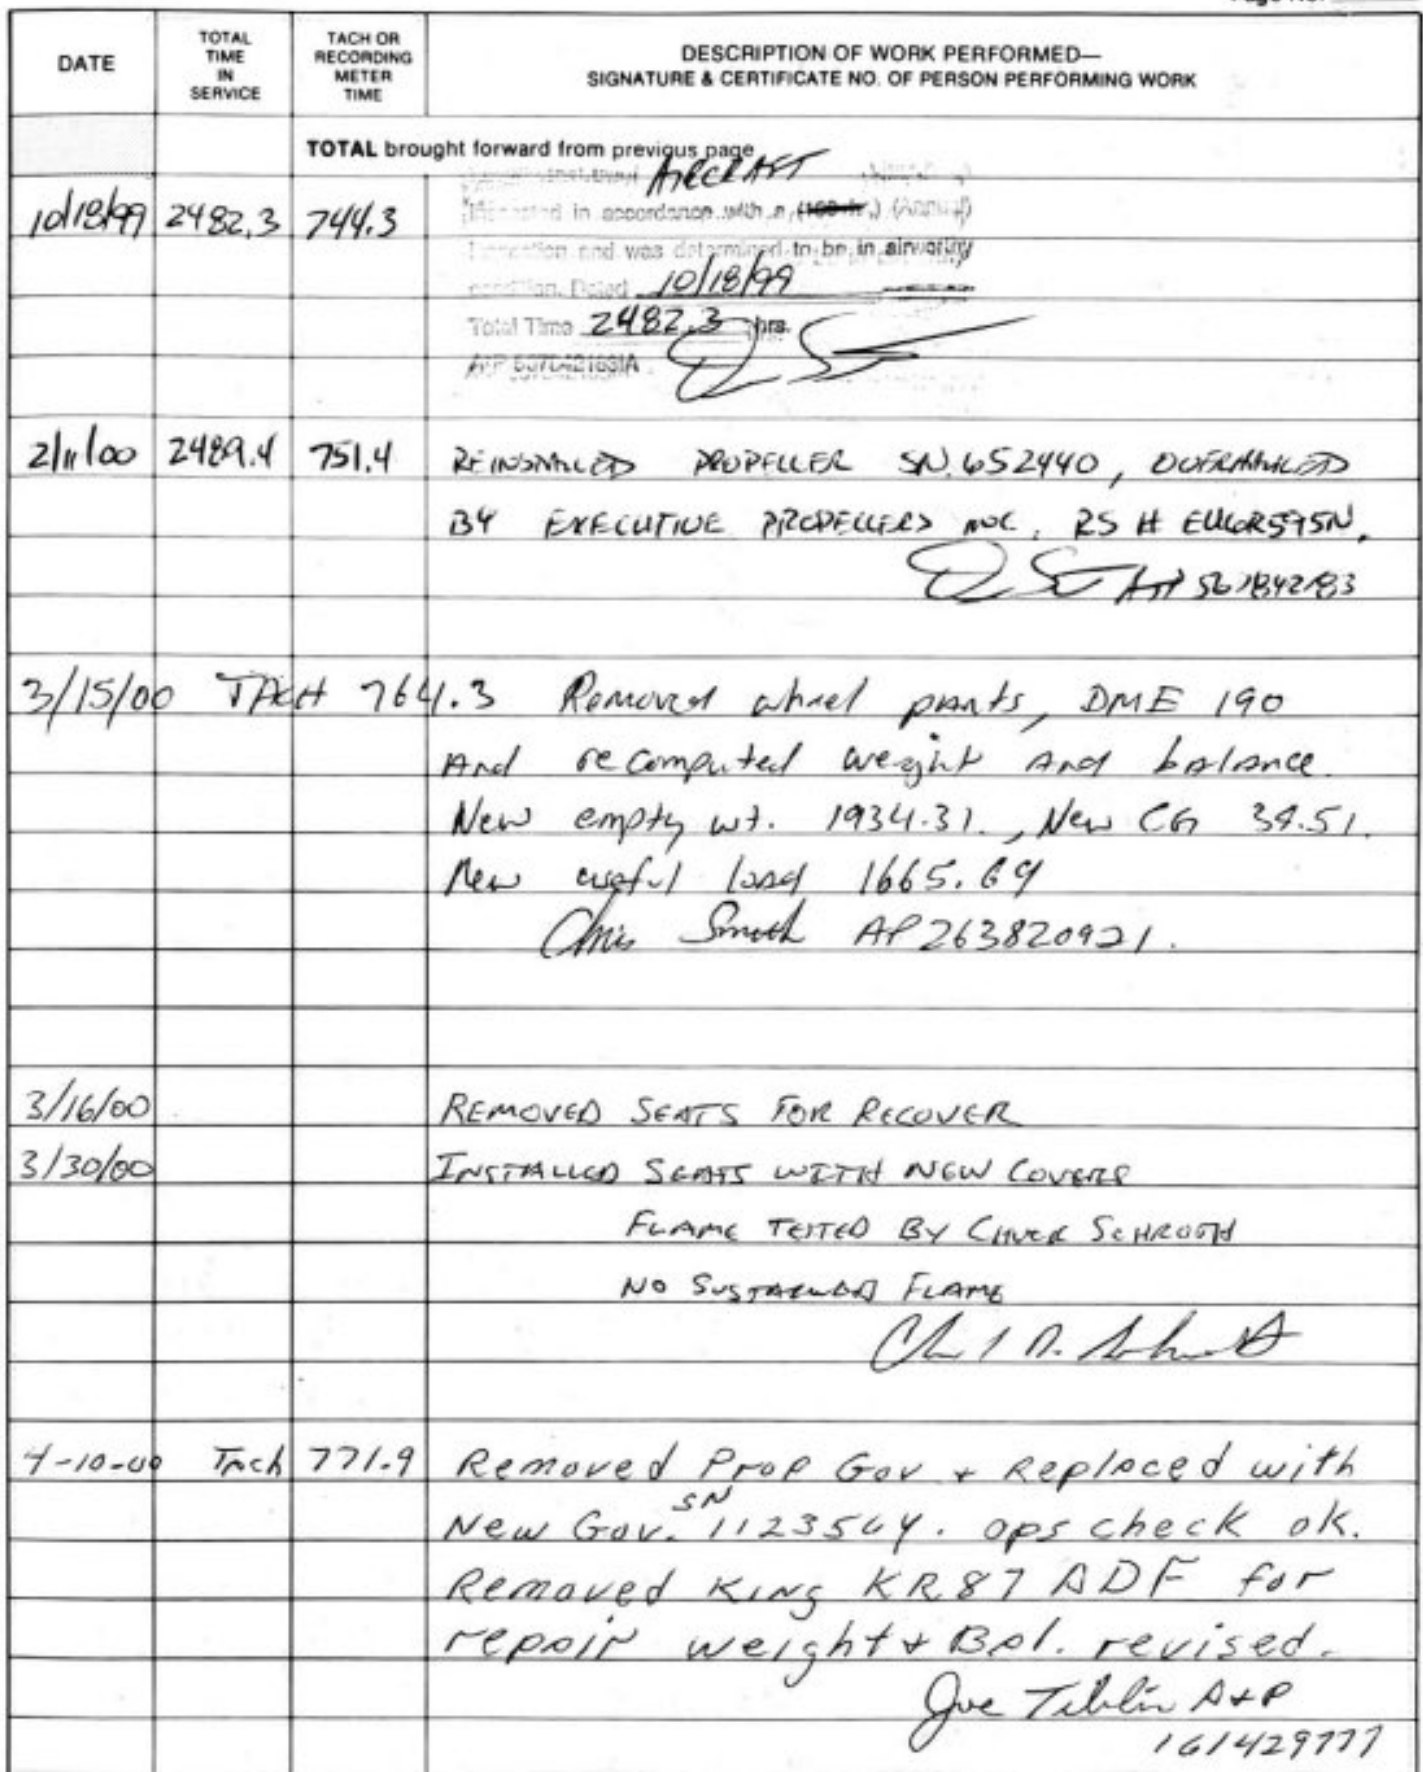 DATE
TOTAL TIME IN SERVICE
TACH OR RECORDING METER TIME
DESCRIPTION OF WORK PERFORMED—
SIGNATURE & CERTIFICATE NO. OF PERSON PERFORMING WORK
TOTAL brought forward from previous page
AIRCRAFT
10/18/99 2482.3 744.3 in accordance with a (100 hr.) (Annual)
and was determined to be in airworthy
condition. Dated 10/18/99
Total Time 2482.3 hrs.
2/11/00 2489.4 751.4 REINSTALLED PROPELLER SN. 652440, OVERHAULED
BY EXECUTIVE PROPELLERS INC. RS #
3/15/00 TACH 764.3 Removed wheel pants, DME 190
And recomputed weight And balance.
New empty wt. 1934.31., New CG 39.51.
New useful load 1665.69
Chris Smith AP 263820921.
3/16/00 REMOVED SEATS FOR RECOVER
3/30/00 INSTALLED SEATS WITH NEW COVERS
FLAME TESTED BY CHUCK SCHROTH
NO SUSTAINED FLAME
4-10-00 Tach 771.9 Removed Prop Gov + Replaced with
New Gov. SN 1123564. ops check ok.
Removed King KR87 ADF for
repair weight + Bal. revised.
Joe A+P
161429777